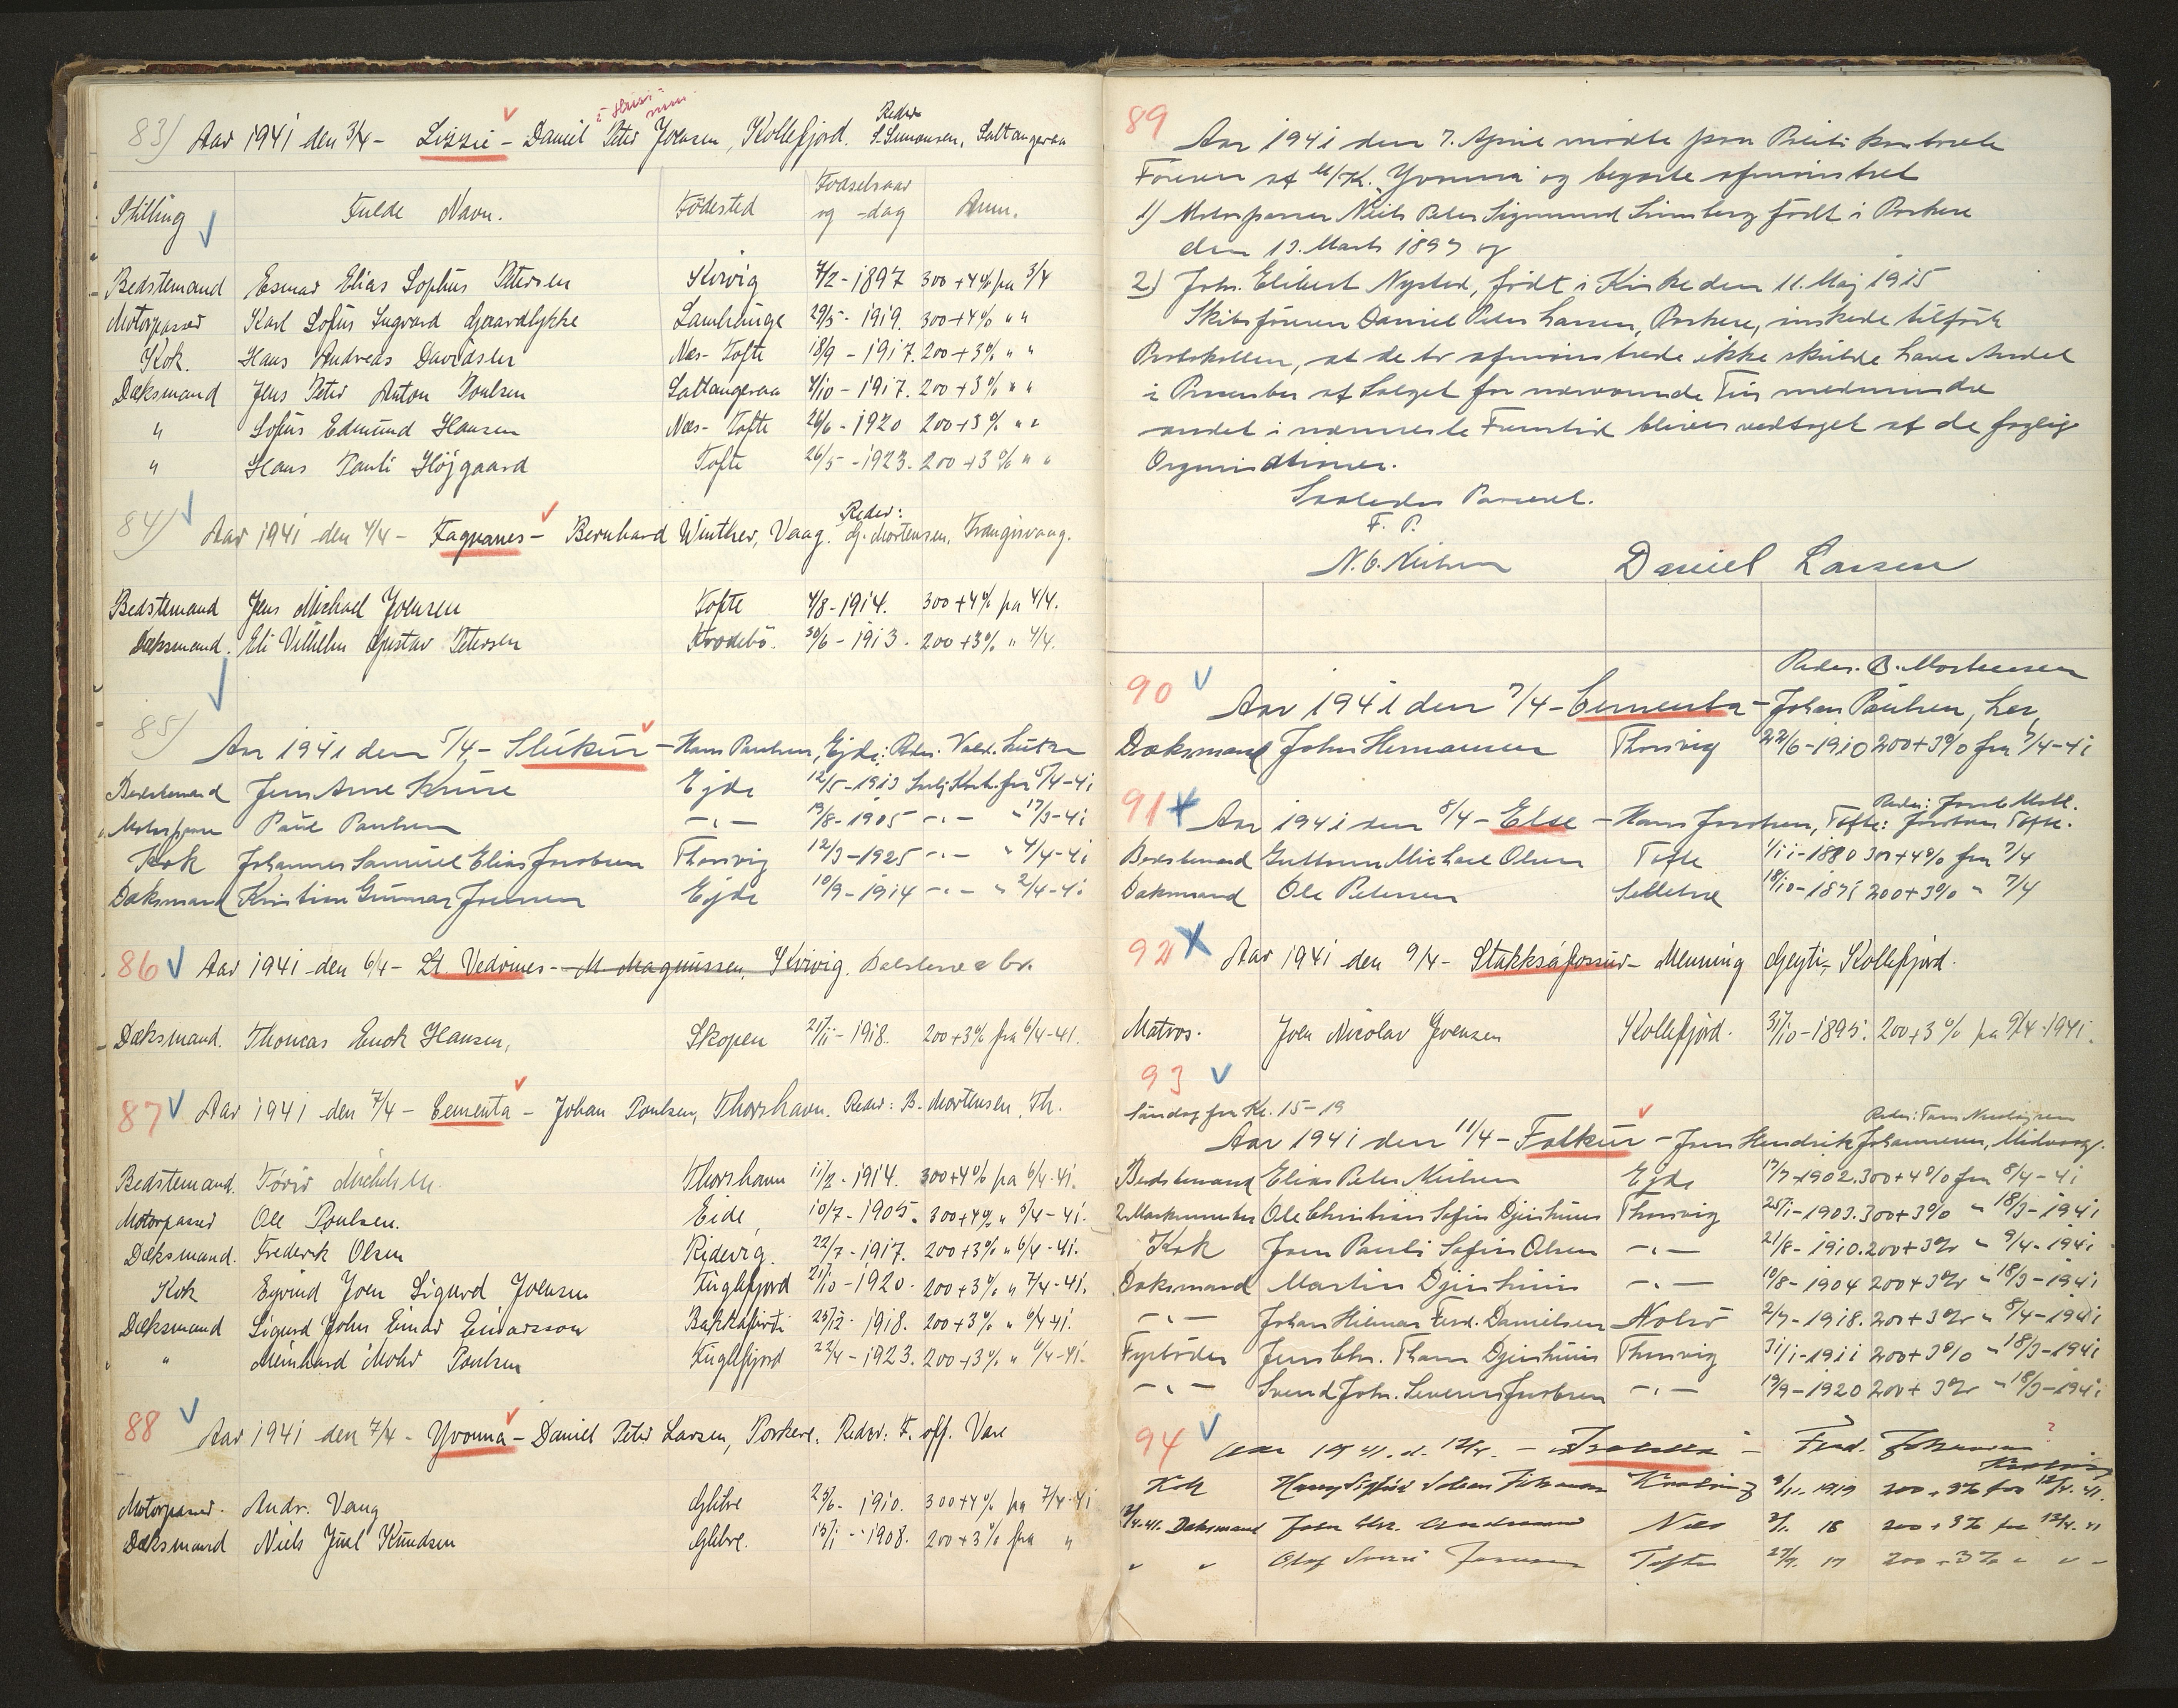 83) Aar 1941 den 3/4 - Lizzie - Daniel Peter Joensen, Kollefjord. Reder S. Simonsen, Saltangeraa
Stilling Fulde Navn. Födested Födselsaar og -dag Anm.
Bedstemand Esmar Elias Sophus Petersen Kvivig 7/2 - 1897 300+4% fra 3/4
Motorpasser Karl Sofus Ingvard Gjaardlykke Lamhauge 29/5 - 1919. 300+4% " "
Kok. Hans Andreas Davidsen Næs - Tofte 18/9 - 1917. 200+3% " "
Dæksmand Jens Peter Anton Poulsen Saltangeraa 4/10 - 1917. 200+3% " "
" Sofus Edmund Hansen Næs - Tofte 26/6 - 1920 200+3% " "
" Hans Pauli Højgaard Tofte 26/5 - 1923. 200+3% " "
84) Aar 1941 den 4/4 - Fagranes - Bernhard Winther, Vaag. Reder: G. Mortensen, Trangisvaag.
Bedstemand Jens Michael Joensen Tofte 4/8 - 1914. 300+4% fra 4/4.
Dæksmand. Eli Vilhelm Gustav Petersen Hvalbö. 30/6 - 1913. 200+3% " 4/4.
85) Aar 1941 den 5/4 - Slúkur - Hans Paulsen, Ejde: Reder. Vald. Lützen
Bedstemand Jens Arne Kruse Ejde 12/5 - 1913 fra 5/4-41
Motorpasser Paul Paulsen -"- 19/8 - 1905 -"- " 17/3-41
Kok Johannes Samuel Elias Jacobsen Thorsvig 12/3 - 1925 -"- " 4/4-41
Dæksmand Kristian Gunnar Joensen Ejde 10/9 - 1914 -"- " 2/4-41
86 Aar 1941 den 6/4 - St. Vedrines - M. Magnussen, Kvivig.
Dæksmand. Thomas Enok Hansen, Skopen 21/11 - 1918. 200+3% fra 6/4-41.
87 Aar 1941 den 7/4 - Cementa - Johan Poulsen, Thorshavn. Reder: B. Mortensen, Th.
Bedstemand. Tórir Thorshavn 11/2 - 1914. 300+4% fra 6/4-41.
Motorpasser Ole Poulsen. Eide, 10/7 - 1905. 300+4% " 5/4-41.
Dæksmand. Frederik Olsen Ridevig. 22/7 - 1917. 200+3% " 6/4-41.
Kok Eyvind Joen Sigurd Joensen Fuglefjord 21/10 - 1920. 200+3% " 7/4-41.
Dæksmand Sigurd John Einar Einarsson Bakkafirdi 25/12 - 1918. 200+3% " 6/4-41.
" " Meinhard Mohr Poulsen Fuglefjord 22/4 - 1923. 200+3% " 6/4-41.
88 Aar 1941 den 7/4 - Yvonna - Daniel Peter Larsen, Porkere. Reder: F. off. Vare
Motorpasser. Andr. Vang Glibre 25/6 - 1910. 300+4% fra 7/4-41
Dæksmand Niels Juul Knudsen Glibre. 15/1 - 1908. 200+3% fra "
89
Aar 1941 den 7. April mødte paa
Föreren af M/K. Yvonna og begærte afmönstret
1) Motorpasser Niels Peter Sigmund Simberg födt i Porkere
den 13. Marts 1897 og
2) Johs. Elibert Nysted, födt i Kirke den 11. Maj 1915
Skibsföreren Daniel Peter Larsen, Porkere, önskede tilført
Protokollen, at de to afmönstrede ikke skulde have Andel
i Procenter af Salget for nærværende Tur medmindre
andet i nærmeste Fremtid bliver vedtaget af de faglige
Organisationer.
Saaledes Passeret.
F. P.
N. C. Nielsen Daniel Larsen
90 Reder. B. Mortensen
Aar 1941 den 7/4 - Cementa - Johan Paulsen, her
Dæksmand John Hermannsen Thorsvig 22/6 - 1910 200+3% fra 7/4-41
91 Aar 1941 den 8/4 - Else - Hans Jacobsen, Tofte: Reder: Jacobsen Tofte.
Bedstemand Guttorm Michael Olsen Tofte 1/11 - 1880 300+4% fra 7/4
Dæksmand Ole Petersen Selletræ 18/10 - 1875 200+3% " 7/4
92 Aar 1941 den 9/4 - Stakksáfossur - Menning Geyti, Kollefjord.
Matros. Joen Nicolav Joensen Kollefjord. 31/10 - 1895. 200+3% fra 9/4-1941.
93
Söndag fra Kl. 15-19
Aar 1941 den 11/4 - Falkur - Jens Hendrik Johannesen, Midvaag.
Bedstemand Elias Peter Nielsen Ejde 17/7 - 1902. 300+4% fra 8/4-41
2. Maskinmester Ole Christian Sofus Djurhuus Thorsvig 25/1 - 1903. 300+3% " 18/3-1941
Kok Jens Pauli Sofus Olsen -"- 21/8 - 1910. 200+3% " 9/4-1941
Dæksmand Martin Djurhuus -"- 10/8 - 1904 200+3% " 18/3-1941
-"- Johan Hilmar Ferd. Danielsen Nolsö 2/7 - 1918. 200+3% " 8/4-1941
Fyrböder Jens Chr. Tham Djurhuus Thorsvig 31/1 - 1911 200+3% " 18/3-1941
-"- Svend Johs. Severin Jacobsen -"- 19/9 - 1920 200+3% " 18/3-1941
94 Aar 1941 d. 12/4. - Ferd. Johannesen
Kok 9/11. 1919 200+3% fra 12/4. 41.
12/4-41. Dæksmand John Chr. Næs 3/1. 18 200+3% fra 12/4. 41
" " Olaf Tofte 27/7. 17 200+3% " " "